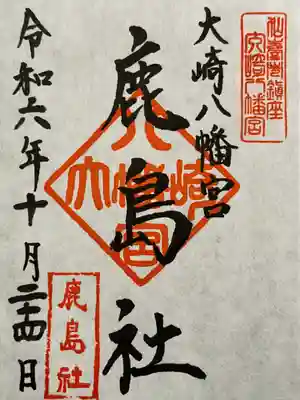 大崎八幡宮
大崎八幡宮
鹿島社
大崎八幡宮
令和六年十月二十四日
鹿島社